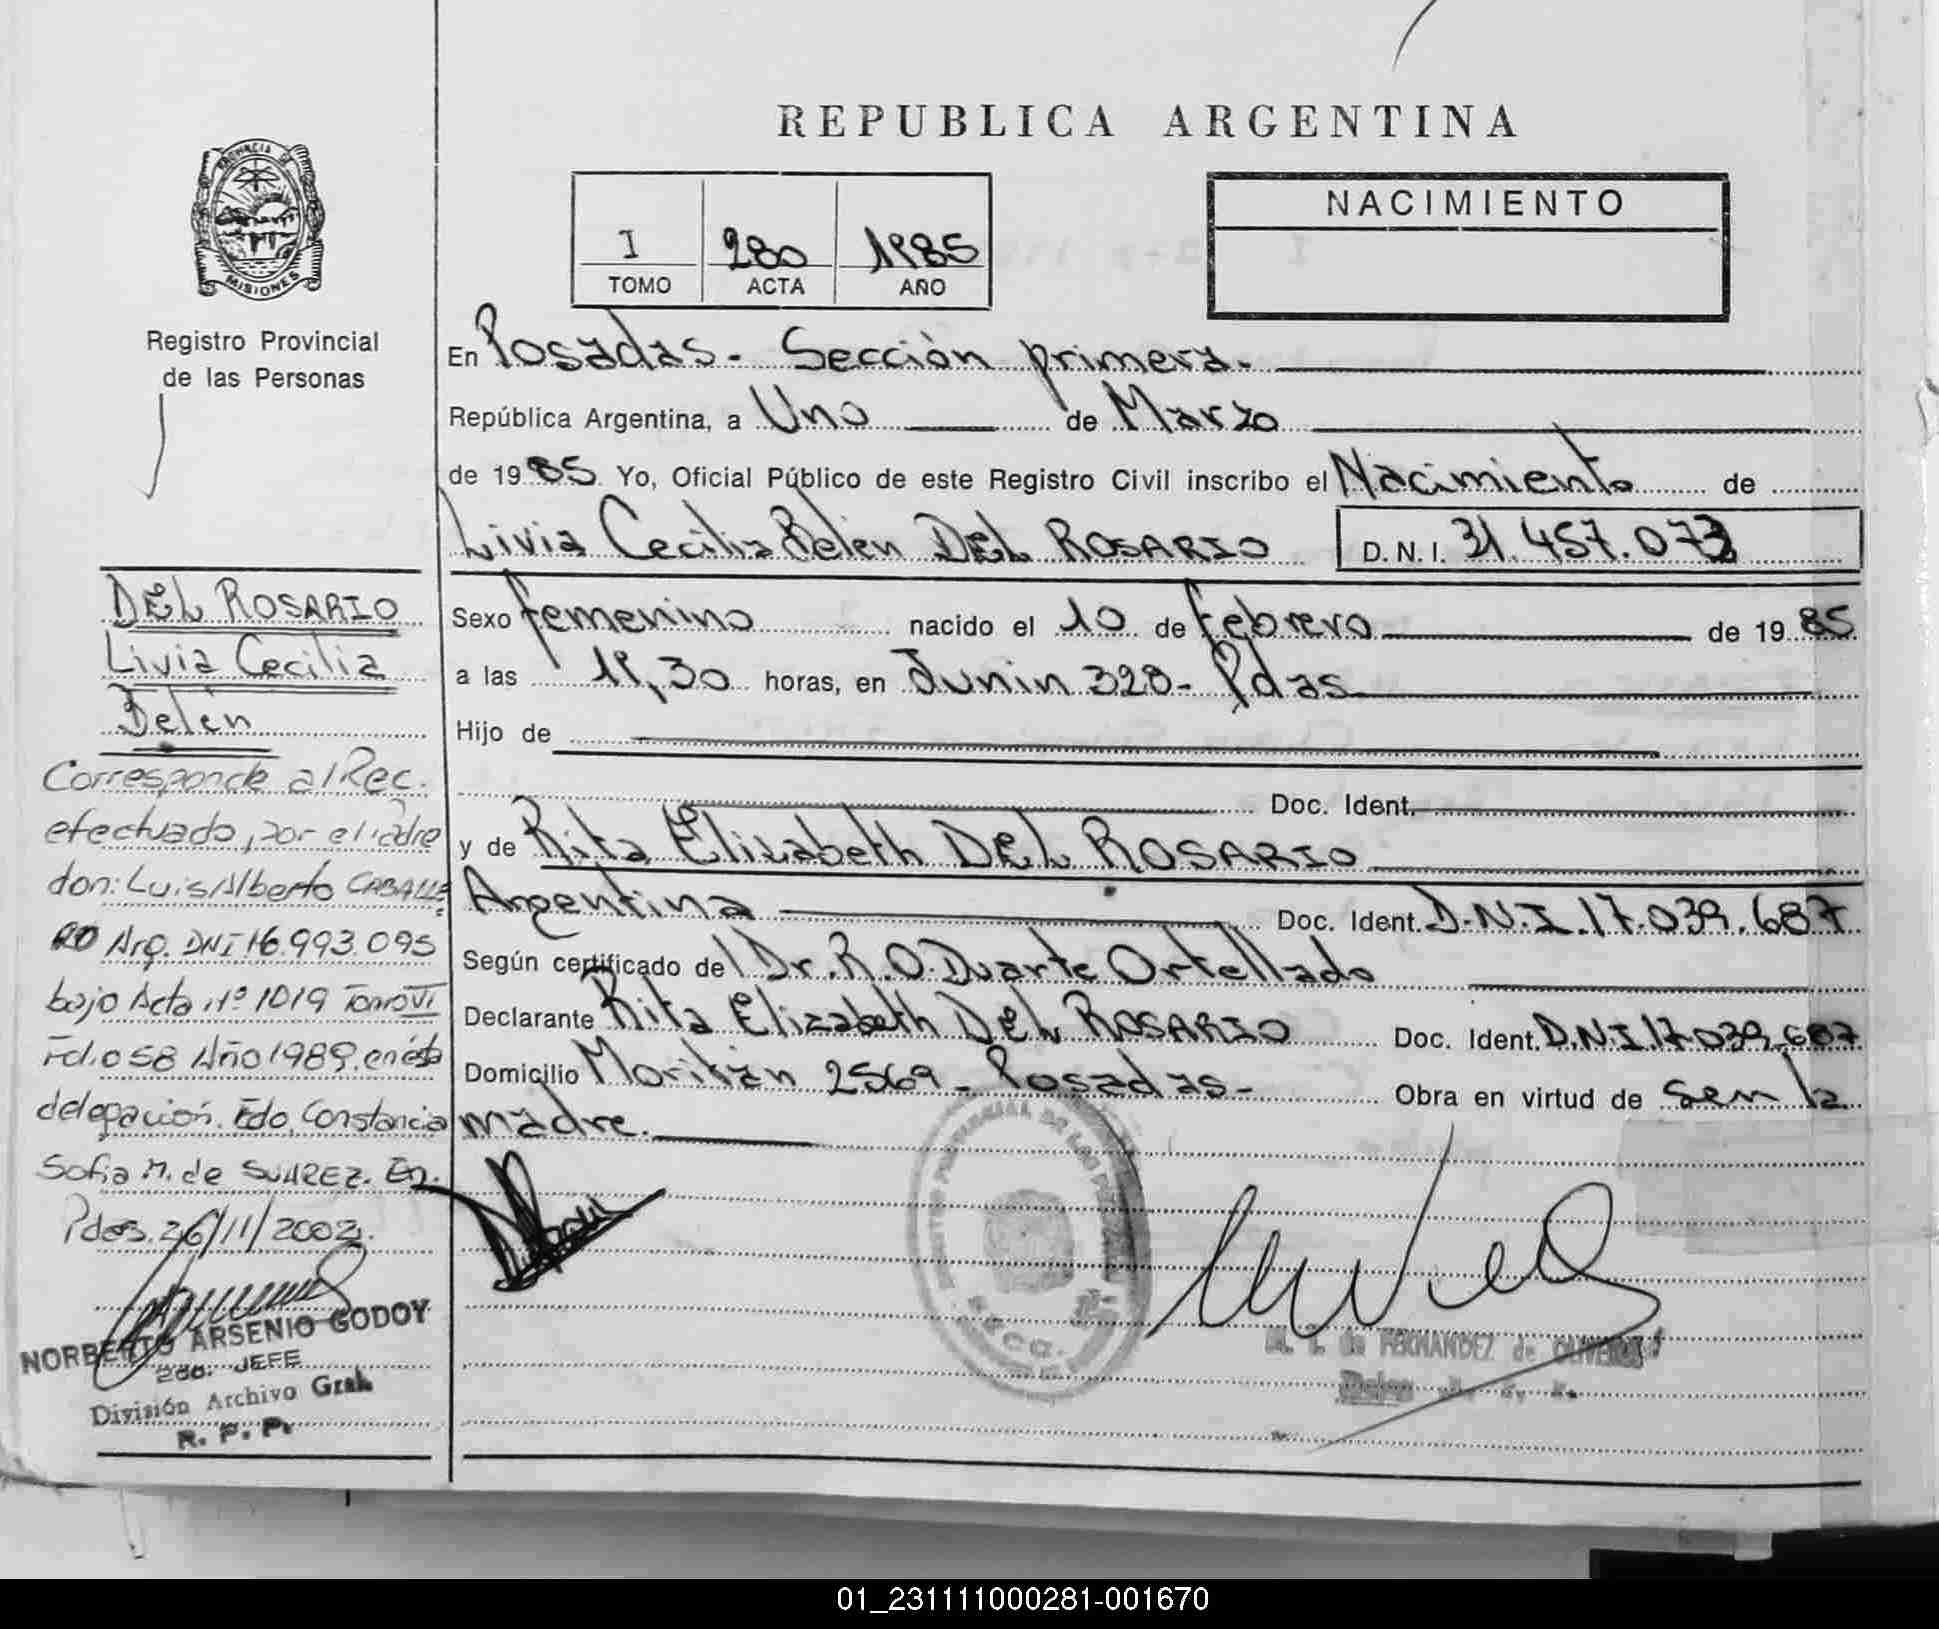 REPUBLICA ARGENTINA
PROVINCIA DE
MISIONES
Registro Provincial
de las Personas
I 280 1985
TOMO ACTA AÑO
NACIMIENTO
En Posadas - Sección primera.
República Argentina, a Uno de Marzo
de 1985 Yo, Oficial Público de este Registro Civil inscribo el Nacimiento de
Livia Cecilia Belén DEL ROSARIO D.N.I. 31.457.073
Sexo femenino nacido el 10 de febrero de 1985
a las 19,30 horas, en Junin 328 - Pdas
Hijo de
Doc. Ident.
y de Rita Elizabeth DEL ROSARIO
Argentina Doc. Ident. D.N.I. 17.039.687
Según certificado del Dr. R.O. Duarte Ortellado
Declarante Rita Elizabeth DEL ROSARIO Doc. Ident. D.N.I. 17.039.687
Domicilio 2569 - Posadas - Obra en virtud de ser la
madre.
DEL ROSARIO
Livia Cecilia
Belén
Corresponde al Rec.
efectuado, por el padre
don: Luis Alberto CABALLE
RO Arg. DNI 16.993.095
bajo Acta Nº 1019 Tomo VI
Folio 58 Año 1989, en ésta
delegación. Fdo, Constancia
Sofia M. de SUAREZ. En.
Pdas. 26/11/2002.
NORBERTO ARSENIO GODOY
2do. JEFE
División Archivo Gral.
R. P. P.
M. de FERNANDEZ de OLIVEIRA
01_231111000281-001670